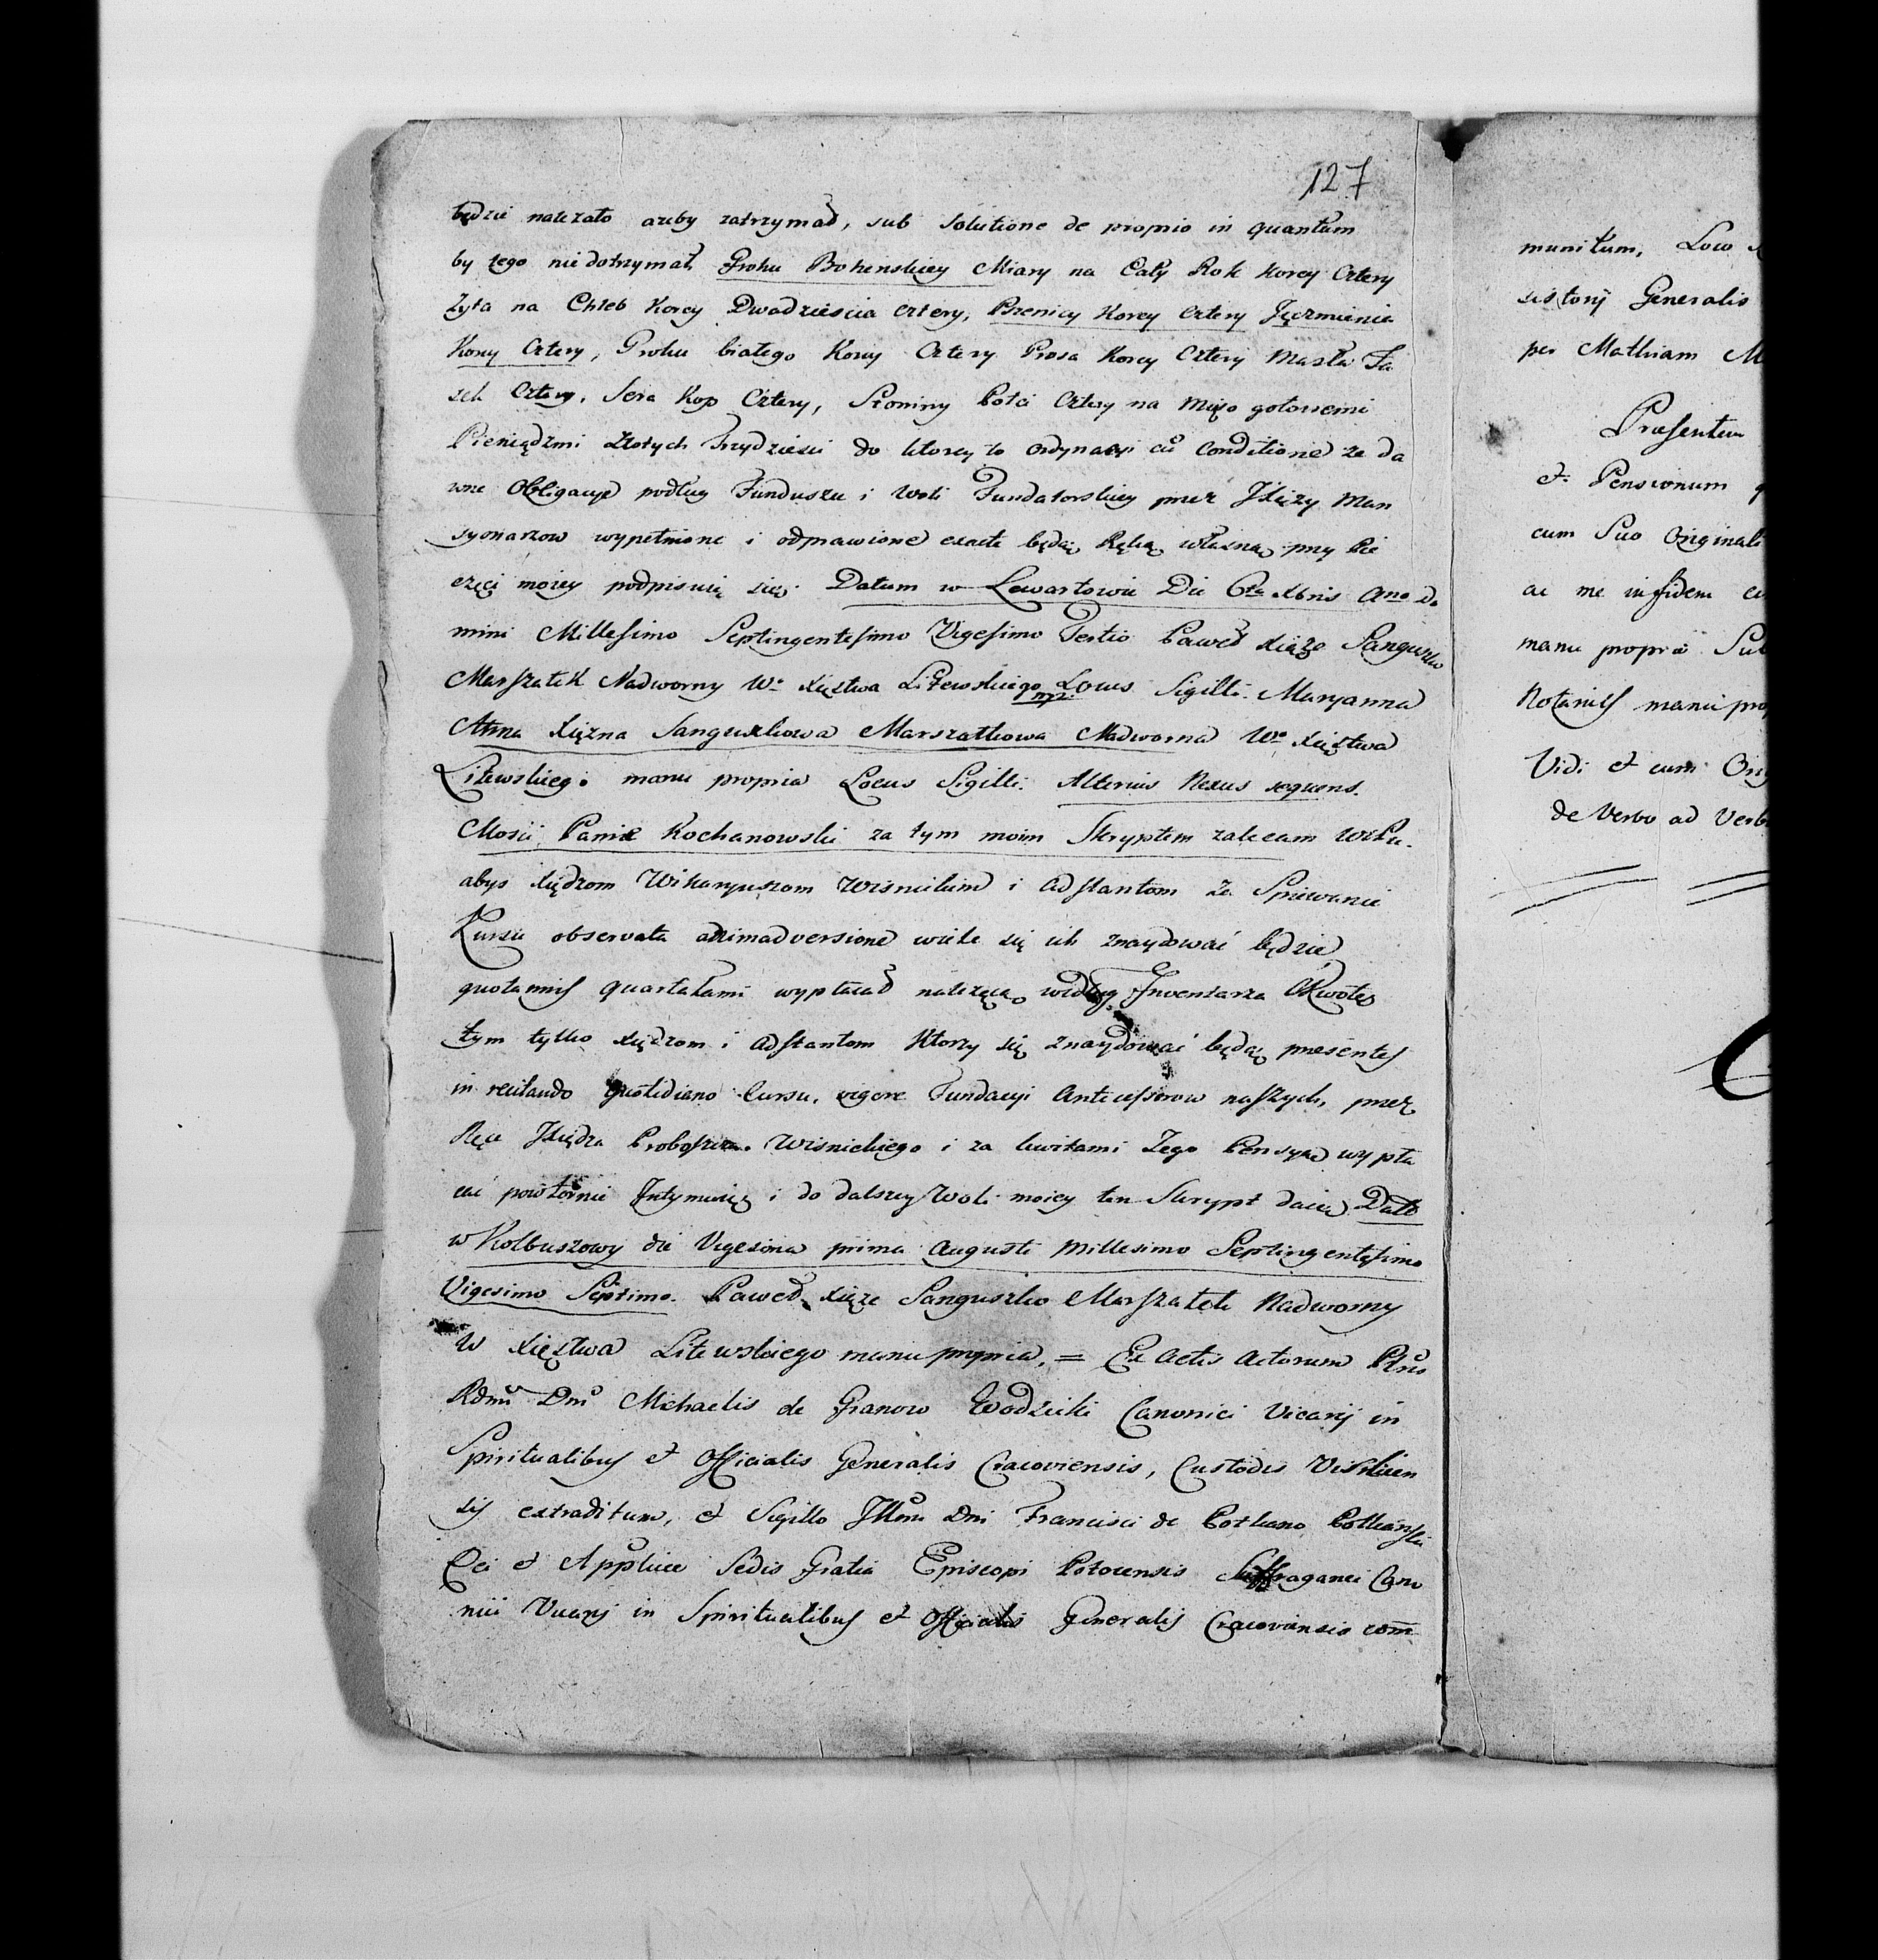 127
będzie należało ażeby zatrzymał, sub Solutione de proprio in quantum
by tego niedotrzymał, Grohu Bohenskiey Miary na Cały Rok Korcy Cztery
Zyta na Chleb Korcy Dwadziescia cztery, Pszenicy Korcy Cztery Jęczmienia
Korcy Cztery, Grohu białego Korcy Cztery Prosa Korcy Cztery Masła Fa
sek Cztery, Sera Kop Cztery, Słoniny Połci Cztery na Mięso gotowemi
Pieniądzmi Złotych Trzydziesci do ktorey to Ordynaryi cũ Conditione że da
wne Obligacye podług Funduszu i Woli Fundatorskiey przez JXięży Man
syonarzow wypełnione i odprawione exacte będą. Ręką własną przy Pie
częci moiey podpisuię się. Datum w Lewartowie Die 6ta Xbris Ano Do
mini Millesimo Septingentesimo Vigesimo Tertio Paweł Xiąże Sanguszko
Marszałek Nadworny Wo Xięstwa Litewskiego mp. Locus Sigilli. Maryanna
Anna Xiężna Sanguszkowa Marszałkowa Nadworna Wo Xięstwa
Litewskiego manu propria Locus Sigilli. Alterius Nexus sequens.
Mosci Panie Kochanowski za tym moim Skryptem zalecam WcPu.
abys Xiędzom Wikaryuszom Wisnickim i Adstantom za Spiewanie
Kursu observata animadversione wiele się ich znaydować będzie,
quotannis Quartałami wypłacał należącą według Inwentarza Kwotę
tym tylko Xiędzom i Adstantom Ktorzy się znaydować będą presentes
in recitando quotidiano Cursu, vigore Fundacyi Antecessorow naszych, przez
Ręce JXiędza Proboszcza Wisnickiego i za kwitami Jego Pensye wypła
cać powtornie Intymuię i do dalszey Woli moiey ten Skrypt daię Datt
w Kolbuszowy die Vigesima prima Augusti Millesimo Septingentesimo
Vigesimo Septimo. Paweł Xiąże Sanguszko Marszałek Nadworny
W Xięstwa Litewskiego manu propria, = Ex Actis Actorum
Rdmi Dni Michaelis de Granow Wodzicki Canonici Vicarij in
Spiritualibus et Officialis Generalis Cracoviensis, Custodis Vislicien
sis extraditum, et Sigillo Illmi Dni Francisci de Potkano Potkanski
Dei et Applicae Sedis Gratia Episcopi Suffraganei Cano
nici Vicarij in Spiritualibus et Officialis Generalis Cracoviensis com
munitum, Loco
sistorij Generalis
per Mathiam M
Praesentem
et Pensionum
cum Suo Originali
ac me in fidem
manu propria Sub
Notarius manu prop
Vidi et cum Orig
de Verbo ad Verb